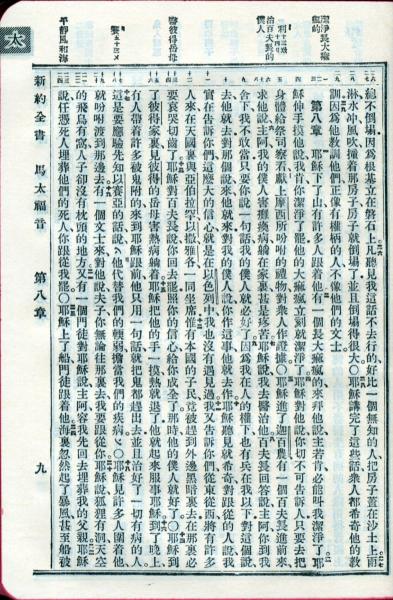 潔淨長大痲瘋的
治百夫長的僕人
醫彼得岳母
平靜風和海
太
總不倒塌因爲根基立在磐石上凡聽見我這話不去行的好比一個無知的人把房子蓋在沙土上雨
淋水冲風吹撞着那房子房子就倒塌了並且倒塌得很大〇耶穌講完了這些話衆人都希奇他的教
訓因爲他教訓他們正像有權柄的人不像他們的文士
第八章 耶穌下了山有許多人跟着他有一個長大痲瘋的來拜他說主若肯必能叫我潔淨了耶
穌伸手摸他說我肯你潔淨了罷他的大痲瘋立刻就潔淨了耶穌對他說你切不可告訴人只要去把
身體給祭司察看獻上摩西所吩咐的禮物對衆人作證據〇耶穌進了迦百農有一個百夫長進前來
求他說主阿我的僕人害癱瘓病躺在家裏甚是疼苦耶穌說我去醫治他百夫長回答說主阿你到我
舍下我不敢當只要你說一句話我的僕人就必好了因爲我在人的權下也有兵在我以下對這個說
去他就去對那個說來他就來對我的僕人說你作這事他就去作耶穌聽見就希奇對跟從的人說我
實在告訴你們這麽大的信心就是在以色列中我也沒有遇見過我又告訴你們從東從西將有許多
人來在天國裏與亞伯拉罕以撒雅各一同坐席惟有本國的子民竟被趕到外邊黑暗裏去在那裏必
要哀哭切齒了耶穌對百夫長說你回去罷照你的信心給你成全了那時他的僕人就好了〇耶穌到
了彼得家裏見彼得的岳母害熱病躺着耶穌把他的手一摸熱就退了他就起來服事耶穌到了晚上
有人帶着許多被鬼附的來到耶穌跟前他只用一句話就把鬼都趕出去並且治好了一切有病的人
這是要應驗先知以賽亞的話說他代替我們的軟弱擔當我們的疾病〇耶穌見許多人圍着他
就吩咐渡到那邊去有一個文士來對他說夫子你無論往那裏去我要跟從你耶穌說狐狸有洞天空
的飛鳥有窩人子卻沒有枕頭的地方又有一個門徒對耶穌說主阿容我先回去埋葬我的父親耶穌
說任憑死人埋葬他們的死人你跟從我罷〇耶穌上了船門徒跟着他海裏忽然起了暴風甚至船被
新約全書 馬太福音 第八章 九